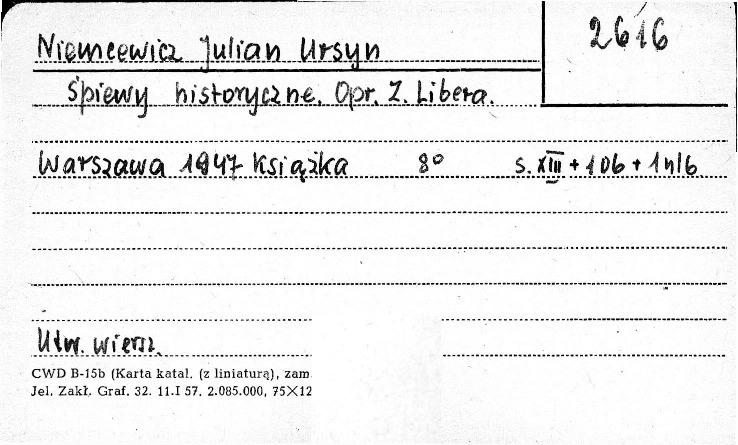 2616
Niemcewicz Julian Ursyn
Śpiewy historyczne. Opr. Z. Libera.
Warszawa 1947 Książka 8° s. XIII + 106 + 1 nlb
Utw. wiersz.
CWD B-15b (Karta katal. (z liniaturą), zam.
Jel. Zakł. Graf. 32. 11.I 57. 2.085.000, 75×12